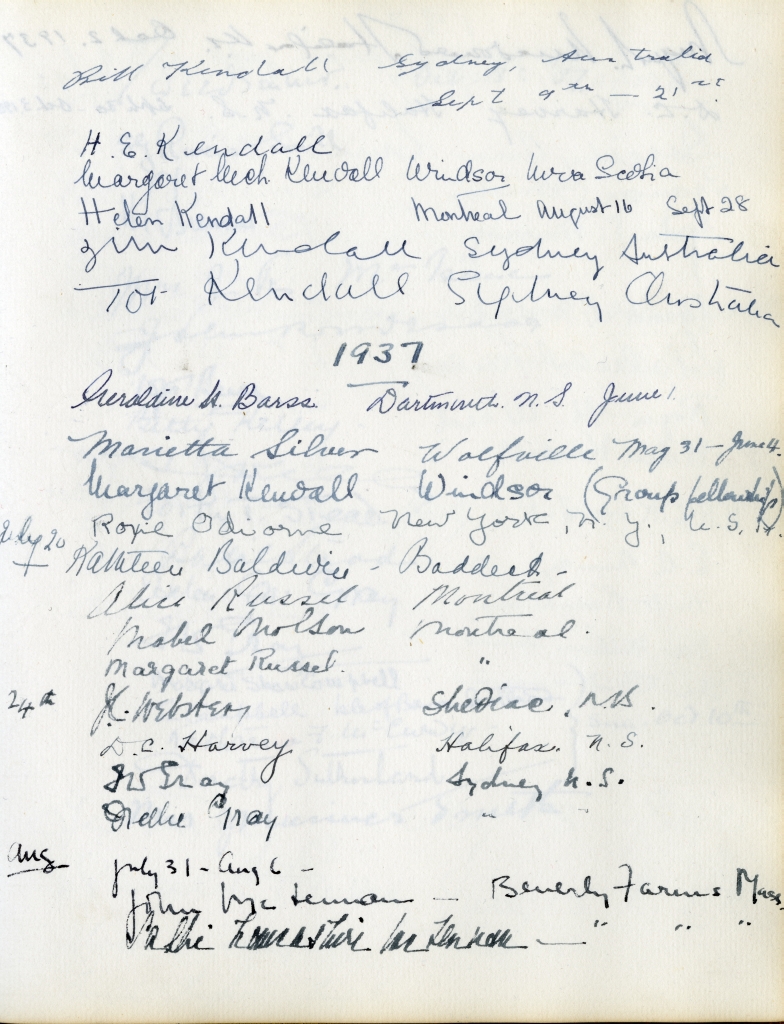 Bill Kendall Sydney, Australia
Sept 9th — 21st
H. E. Kendall
Margaret Kendall Windsor Nova Scotia
Helen Kendall Montreal August 16 Sept 28
Jim Kendall Sydney Australia
Kendall Sydney Australia
1937
Geraldine Barss Dartmouth. N.S. June 1.
Marietta Silver Wolfville May 31 – June 4.
Margaret Kendall Windsor (Group fellowship)
July 20 Roxie Odiorne New York, N.Y., U.S.A.
Kathleen Baldwin - Baddeck -
Alice Russel Montreal
Mabel Molson Montreal.
Margaret Russel. "
24th J.C. Webster, Shediac, N.B.
D.C. Harvey Halifax. N.S.
Gray Sydney N.S.
Gray " "
Aug July 31 - Aug 6 -
John McLennan — Beverly Farms Mass.
McLennan — " " "